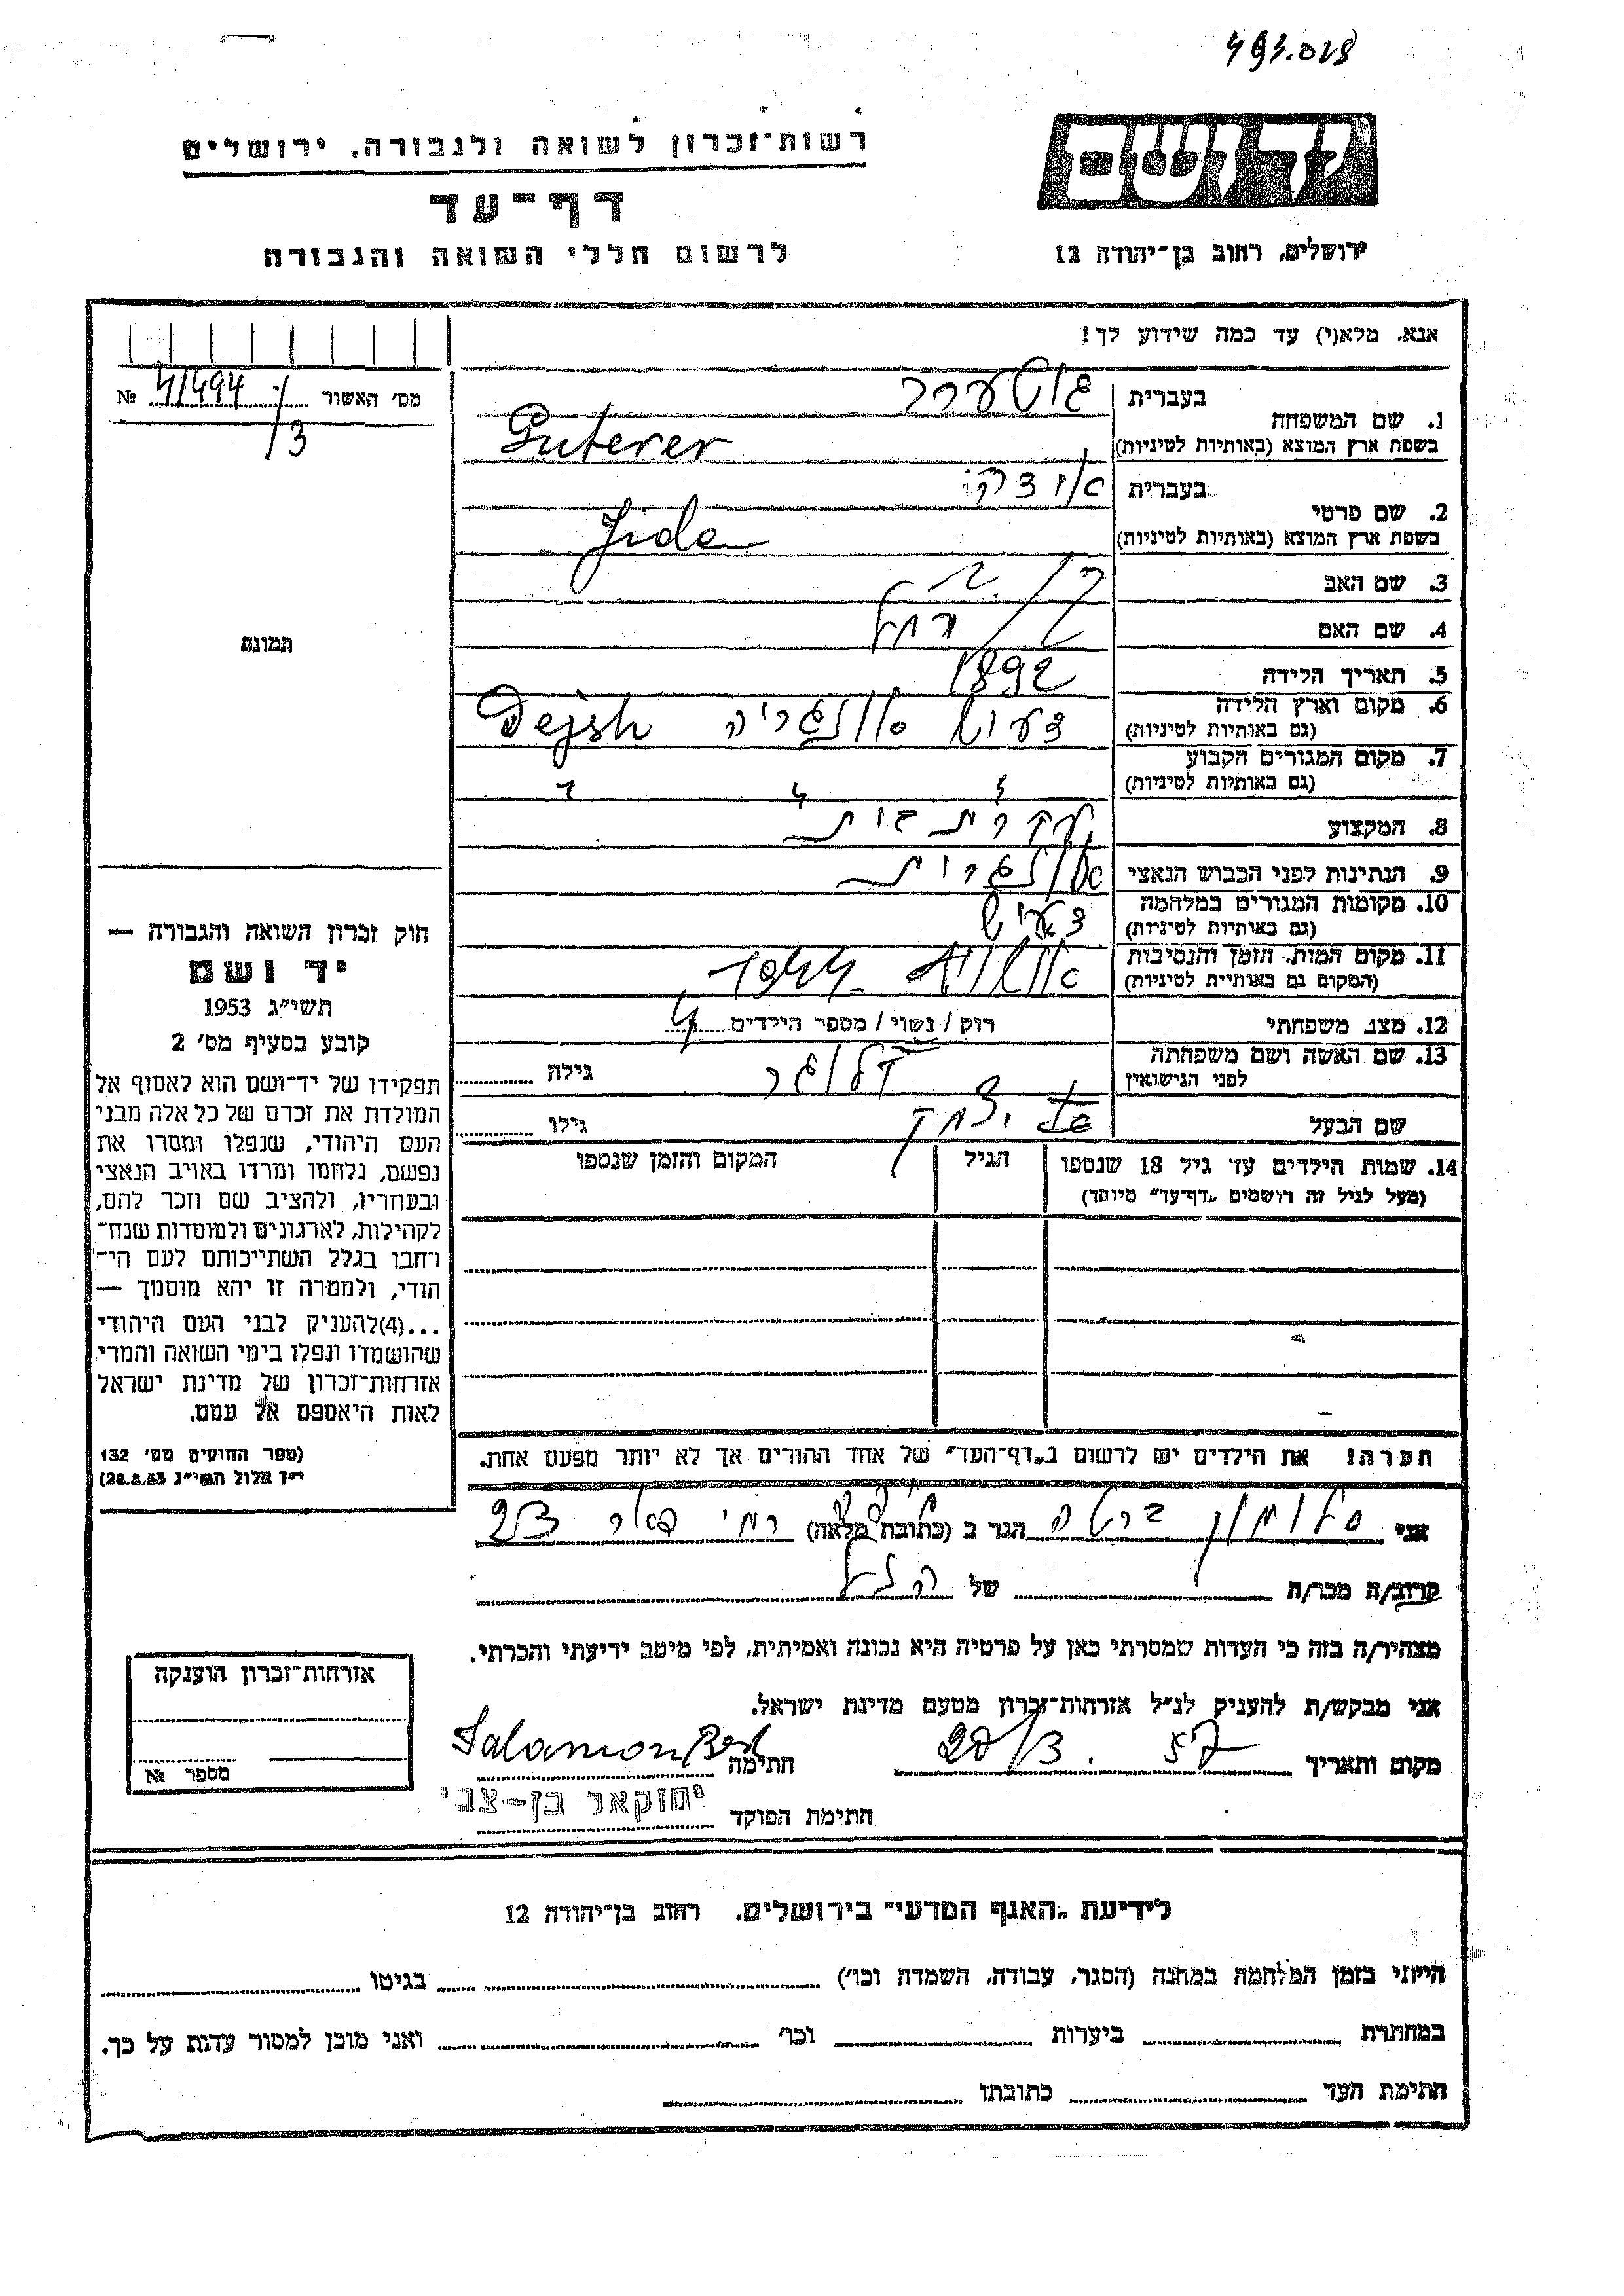 493.028
יד ושם
רשות־זכרון לשואה ולגבורה, ירושלים
דף־עד
לרשום חללי השואה והגבורה
ירושלים, רחוב בן־יהודה 12
אנא, מלא(י) עד כמה שידוע לך!
מס׳ האשור 4/494 №
/3
1. שם המשפחה
בעברית גוטערר
בשפת ארץ המוצא (באותיות לטיניות) Guterer
2. שם פרטי
בעברית
בשפת ארץ המוצא (באותיות לטיניות)
3. שם האב
4. שם האם רחל
5. תאריך הלידה 1892
6. מקום וארץ הלידה
(גם באותיות לטיניות) Dejsh
7. מקום המגורים הקבוע
(גם באותיות לטיניות)
8. המקצוע עקרת בית
9. הנתינות לפני הכבוש הנאצי
10. מקומות המגורים במלחמה
(גם באותיות לטיניות)
11. מקום המות, הזמן והנסיבות
(המקום גם באותיות לטיניות)
12. מצב משפחתי רוק / נשוי / מספר הילדים 4
13. שם האשה ושם משפחתה
לפני הנישואין גילה
שם הבעל יצחק גילו
14. שמות הילדים עד גיל 18 שנספו
(מעל לגיל זה רושמים „דף־עד״ מיוחד)
הגיל
המקום והזמן שנספו
הערה: את הילדים יש לרשום ב„דף־העד״ של אחד ההורים אך לא יותר מפעם אחת.
תמונה
חוק זכרון השואה והגבורה —
יד ושם
תשי״ג 1953
קובע בסעיף מס׳ 2
תפקידו של יד־ושם הוא לאסוף אל
המולדת את זכרם של כל אלה מבני
העם היהודי, שנפלו ומסרו את
נפשם, נלחמו ומרדו באויב הנאצי
ובעוזריו, ולהציב שם וזכר להם,
לקהילות, לארגונים ולמוסדות שנח־
רבו בגלל השתייכותם לעם הי־
הודי, ולמטרה זו יהא מוסמך —
...(4)להעניק לבני העם היהודי
שהושמדו ונפלו בימי השואה והמרי
אזרחות־זכרון של מדינת ישראל
לאות היאספם אל עמם.
(ספר החוקים מס׳ 132
י״ז אלול תשי״ג 28.8.53)
אני סלומון ברטה הגר ב (כתובת מלאה)
קרוב/ה מכר/ה של הנ״ל
מצהיר/ה בזה כי העדות שמסרתי כאן על פרטיה היא נכונה ואמיתית, לפי מיטב ידיעתי והכרתי.
אני מבקש/ת להעניק לנ״ל אזרחות־זכרון מטעם מדינת ישראל.
מקום ותאריך 57 חתימה Salamon
חתימת הפוקד יחזקאל בן־צבי
אזרחות־זכרון הוענקה
מספר №
לידיעת „האגף המדעי״ בירושלים, רחוב בן־יהודה 12
הייתי בזמן המלחמה במחנה (הסגר, עבודה, השמדה וכו׳) בגיטו
במחתרת ביערות וכו׳ ואני מוכן למסור עדות על כך.
חתימת העד כתובתו